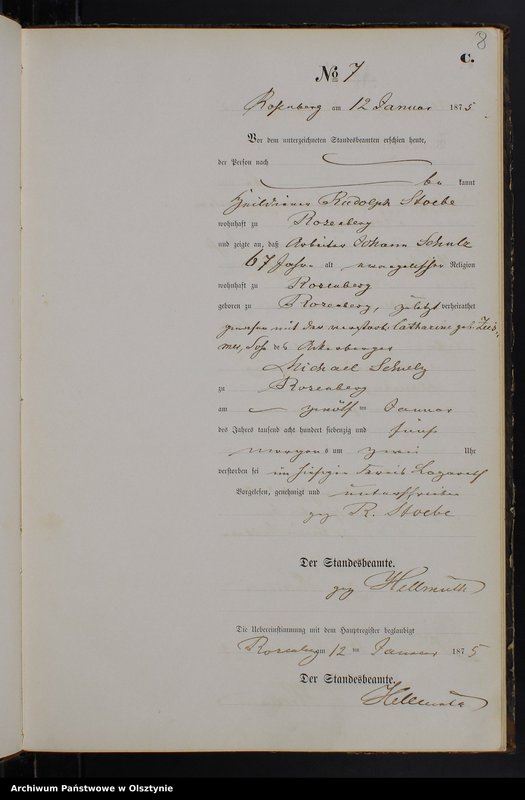 8
C.
No 7
Rosenberg am 12 Januar 1875
Vor dem unterzeichneten Standesbeamten erschien heute,
der Person nach
be kannt
Rudolph Stoebe
wohnhaft zu Rosenberg
und zeigte an, daß Arbeiter Johann Schulz
67 Jahre alt evangelischer Religion
wohnhaft zu Rosenberg
geboren zu Rosenberg, zuletzt verheirathet
gewesen mit der verstorb. Catharine geb.
Sohn des Ackerbürgers
Michael Schulz
zu Rosenberg
am zwölf ten Januar
des Jahres tausend acht hundert siebenzig und fünf
morgens um zwei Uhr
verstorben sei im hiesigen Kreis Lazareth
Vorgelesen, genehmigt und unterschrieben
gez R. Stoebe
Der Standesbeamte.
gez Hellmuth
Die Uebereinstimmung mit dem Hauptregister beglaubigt
Rosenberg am 12 ten Januar 1875
Der Standesbeamte.
Hellmuth
Archiwum Państwowe w Olsztynie